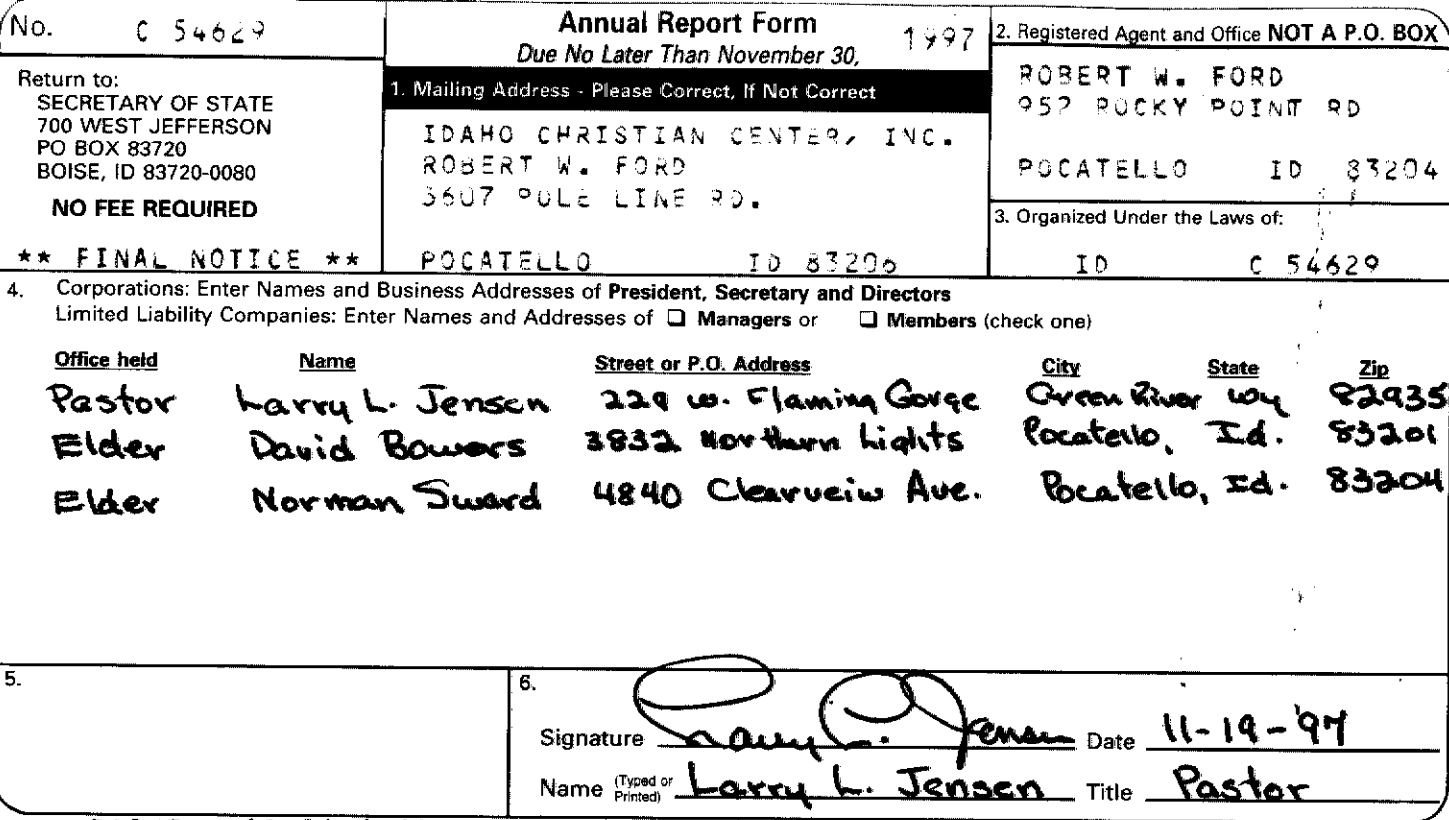 No. C 54629
Annual Report Form 1997
Due No Later Than November 30,
Return to:
SECRETARY OF STATE
700 WEST JEFFERSON
PO BOX 83720
BOISE, ID 83720-0080
NO FEE REQUIRED
** FINAL NOTICE **
1. Mailing Address - Please Correct, If Not Correct
IDAHO CHRISTIAN CENTER, INC.
ROBERT W. FORD
POLE LINE RD.
POCATELLO ID
2. Registered Agent and Office NOT A P.O. BOX
ROBERT W. FORD
952 ROCKY POINT RD
POCATELLO ID 83204
3. Organized Under the Laws of:
ID C 54629
4. Corporations: Enter Names and Business Addresses of President, Secretary and Directors
Limited Liability Companies: Enter Names and Addresses of ❑ Managers or ❑ Members (check one)
Office held Name Street or P.O. Address City State Zip
Pastor Larry L. Jensen 229 W. Flaming Gorge Green River Wy 82935
Elder David Bowers 3832 Northern Lights Pocatello, Id. 83201
Elder Norman Sward 4840 Clearveiw Ave. Pocatello, Id. 83204
5.
6.
Signature Larry L. Jensen Date 11-19-'97
Name (Typed or Printed) Larry L. Jensen Title Pastor